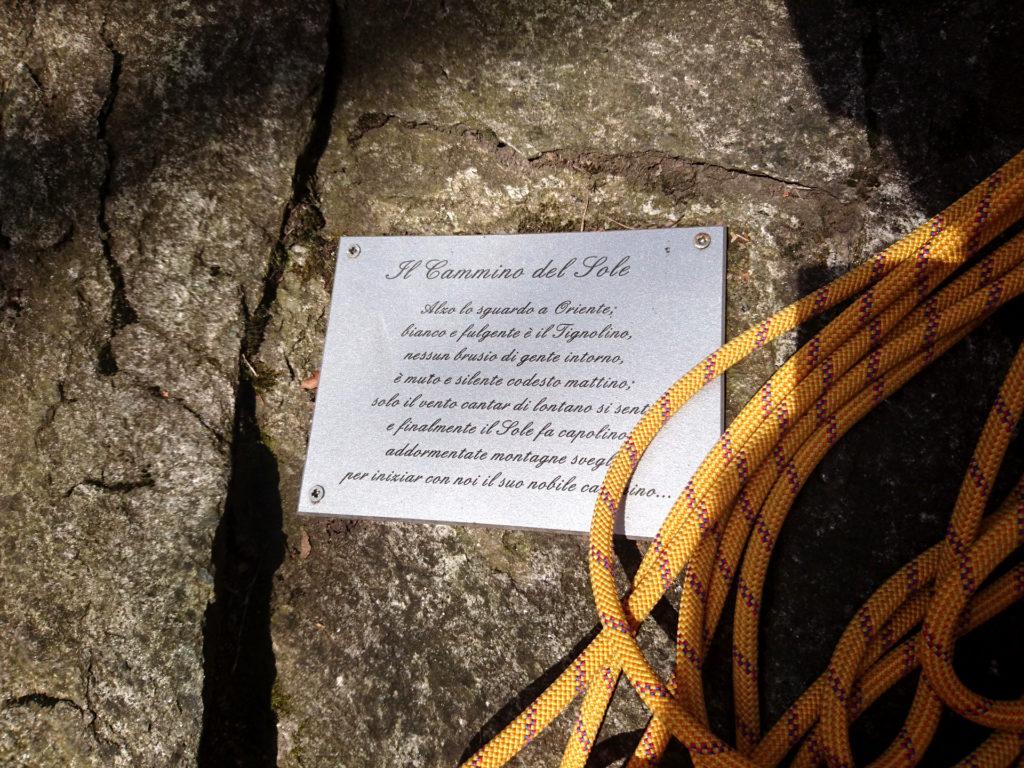 Il Cammino del Sole
Alzo lo sguardo a Oriente;
bianco e fulgente è il Tignolino,
nessun brusio di gente intorno,
è muto e silente codesto mattino;
solo il vento cantar di lontano si
e finalmente il Sole fa capolino
addormentate montagne
per iniziar con noi il suo nobile